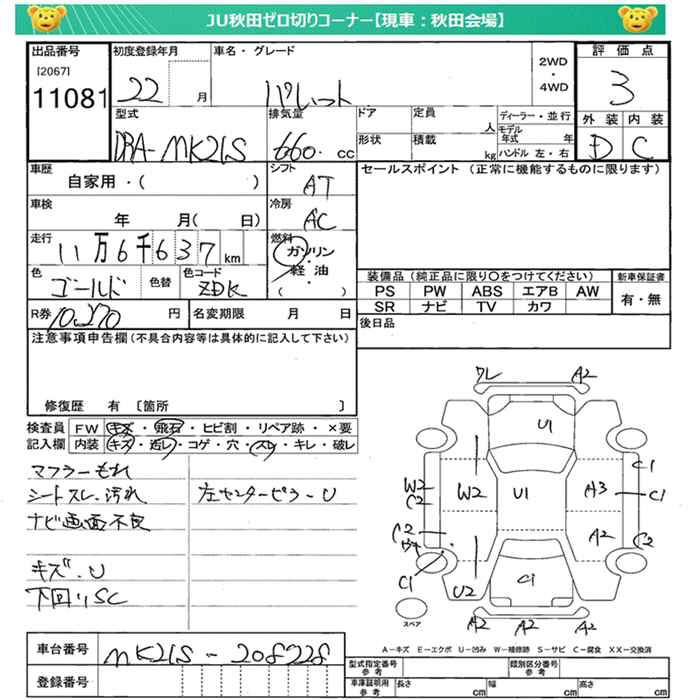 JU秋田ゼロ切りコーナー【現車：秋田会場】
出品番号 初度登録年月 車名・グレード 評価点
[2067]
11081
22 月
パレット
2WD
・
4WD
3
型式 排気量 ドア 定員 人 ディーラー・並行
モデル年式 年
外装 内装
DBA-MK21S 660. CC
形状 積載 kg ハンドル 左・右
D C
車歴 シフト セールスポイント (正常に機能するものに限ります)
自家用・( ) AT
車検 冷房
年 月( 日) AC
走行 燃料
11万6千637km ガソリン・軽油・( )
色 色替 色コード
ゴールド ZDK
装備品 (純正品に限り〇をつけてください) 新車保証書
PS PW ABS エアB AW 有・無
SR ナビ TV カワ
R券 10,270 円 名変期限 月 日
後日品
注意事項申告欄(不具合内容等は具体的に記入して下さい)
修復歴 有 〔箇所 〕
検査員記入欄
FW キズ・飛石・ヒビ割・リペア跡・×要
内装 キズ・汚レ・コゲ・穴・スレ・キレ・破レ
マフラーもれ
シートスレ.汚れ 左センターピラーU
ナビ画面不良
キズ.U
下回りSC
ワレ A2
U1
C1
W2 C2 W2 U1 A3 C1
C2 A2 C2
C1 U2 C1
A2 A2 A2
スペア
A－キズ E－エクボ U－凹み W－補修跡 S－サビ C－腐食 XX－交換済
車台番号 MK21S-208728
登録番号
型式指定番号 参考 類別区分番号 参考
車庫証明用 参考 長さ cm 幅 cm 高さ cm